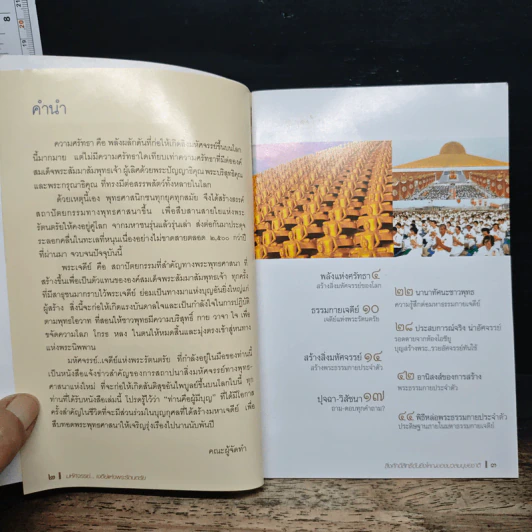 คำนำ
ความศรัทธา คือ พลังผลักดันที่ก่อให้เกิดสิ่งมหัศจรรย์ขึ้นบนโลก
นี้มากมาย แต่ไม่มีความศรัทธาใดเทียบเท่าความศรัทธาที่มีต่อองค์
สมเด็จพระสัมมาสัมพุทธเจ้า ผู้เลิศด้วยพระปัญญาธิคุณ พระบริสุทธิคุณ
และพระกรุณาธิคุณ ที่ทรงมีต่อสรรพสัตว์ทั้งหลายในโลก
ด้วยเหตุนี้เอง พุทธศาสนิกชนทุกยุคทุกสมัย จึงได้สร้างสรรค์
สถาปัตยกรรมทางพุทธศาสนาขึ้น เพื่อสืบสานสายใยแห่งพระ
รัตนตรัยให้คงอยู่คู่โลก จากมหาชนรุ่นแล้วรุ่นเล่า ส่งต่อกันมาประดุจ
ระลอกคลื่นในทะเลที่หนุนเนื่องอย่างไม่ขาดสายตลอด ๒,๕๐๐ กว่าปี
ที่ผ่านมา จวบจนปัจจุบันนี้
พระเจดีย์ คือ สถาปัตยกรรมที่สำคัญทางพระพุทธศาสนา ที่
สร้างขึ้นเพื่อเป็นตัวแทนขององค์สมเด็จพระสัมมาสัมพุทธเจ้า ทุกครั้ง
ที่มีสาธุชนมากราบไหว้พระเจดีย์ ย่อมเป็นทางมาแห่งบุญอันยิ่งใหญ่แก่
ผู้สร้าง สิ่งนี้จะก่อให้เกิดแรงบันดาลใจและเป็นกำลังใจในการปฏิบัติ
ตามพุทธโอวาท ที่สอนให้ชาวพุทธมีความบริสุทธิ์ กาย วาจา ใจ เพื่อ
ขจัดความโลภ โกรธ หลง ในตนให้หมดสิ้นและมุ่งตรงเข้าสู่หนทาง
แห่งพระนิพพาน
มหัศจรรย์...เจดีย์แห่งพระรัตนตรัย ที่กำลังอยู่ในมือของท่านนี้
เป็นหนังสือแจ้งข่าวสำคัญของการสถาปนาสิ่งมหัศจรรย์ทางพุทธ
ศาสนาแห่งใหม่ ที่จะก่อให้เกิดสันติสุขอันไพบูลย์ขึ้นบนโลกใบนี้ ทุก
ท่านที่ได้รับหนังสือเล่มนี้ โปรดรู้ไว้ว่า "ท่านคือผู้มีบุญ" ที่ได้มีโอกาส
ครั้งสำคัญในชีวิตที่จะมีส่วนร่วมในบุญกุศลที่ได้สร้างมหาเจดีย์ เพื่อ
สืบทอดพระพุทธศาสนาให้เจริญรุ่งเรืองไปนานนับพันปี
คณะผู้จัดทำ
๒ | มหัศจรรย์... เจดีย์แห่งพระรัตนตรัย
พลังแห่งศรัทธา ๔
สร้างสิ่งมหัศจรรย์ของโลก
ธรรมกายเจดีย์ ๑๐
เจดีย์แห่งพระรัตนตรัย
สร้างสิ่งมหัศจรรย์ ๑๔
สร้างพระธรรมกายประจำตัว
ปุจฉา-วิสัชนา ๑๗
ถาม-ตอบทุกคำถาม?
๒๒ นานาทัศนะชาวพุทธ
ความรู้สึกต่อมหาธรรมกายเจดีย์
๒๘ ประสบการณ์จริง น่าอัศจรรย์
รอดตายจากห้องไอซียู
บุญสร้างพระ...รวยอัศจรรย์ทันใช้
๔๒ อานิสงส์ของการสร้าง
พระธรรมกายประจำตัว
๔๔ พิธีหล่อพระธรรมกายประจำตัว
ประดิษฐานภายในมหาธรรมกายเจดีย์
| ๓